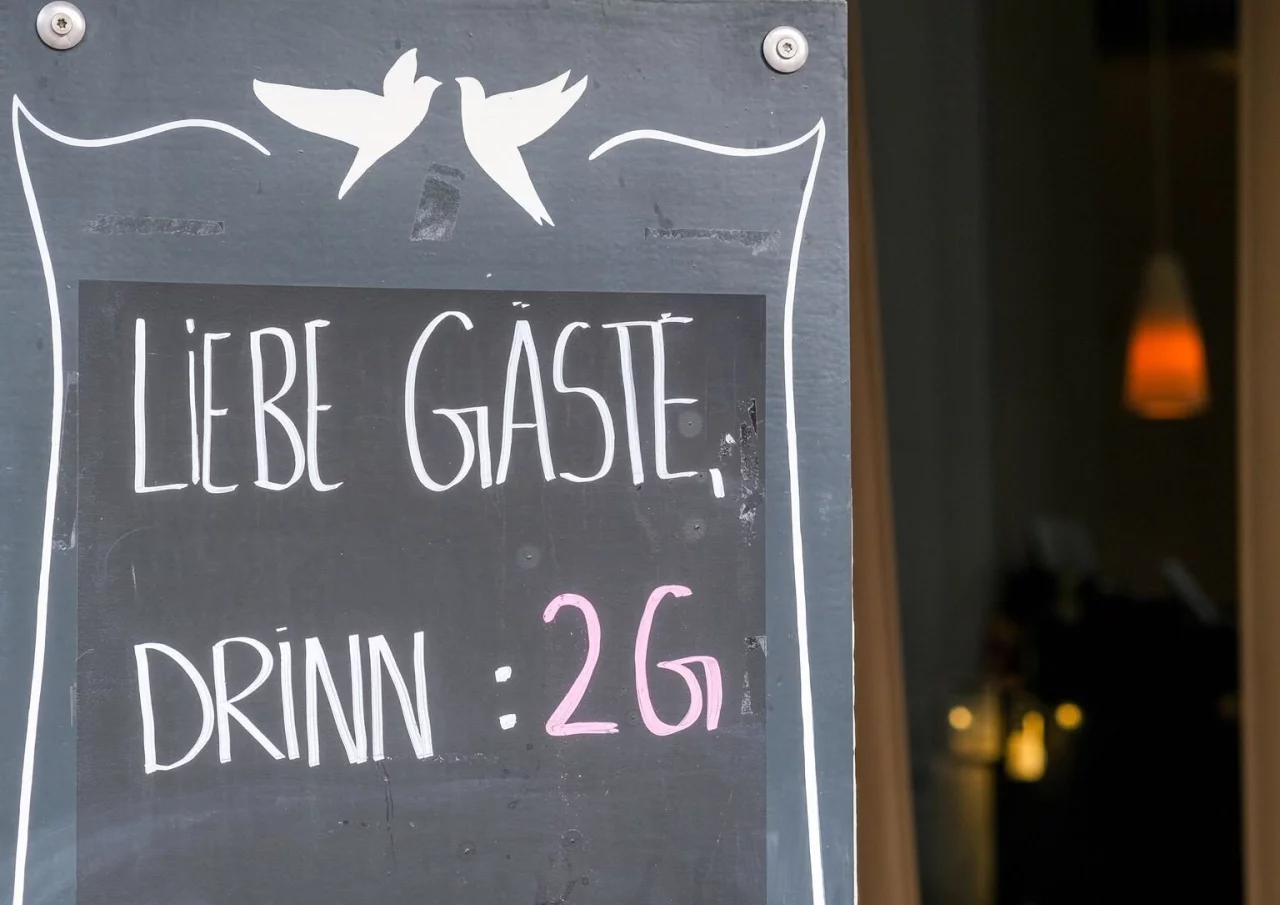 LiEBE GÄSTE,
DRiNN : 2G